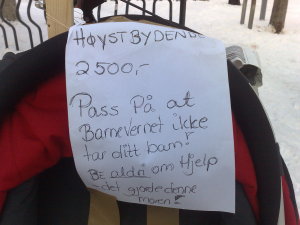 HØYSTBYDENDE
2500,-
Pass På at
Barnevernet ikke
tar ditt barn!
BE aldri om Hjelp
-det gjorde denne
moren!